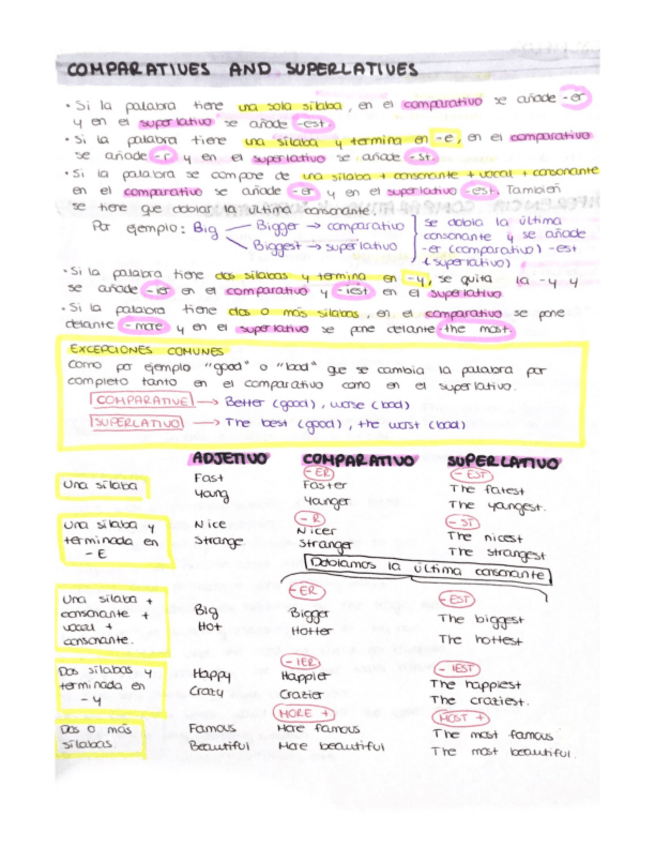 COMPARATIVES AND SUPERLATIVES
• Si la palabra tiene una sola sílaba, en el comparativo se añade -er
y en el superlativo se añade -est.
• Si la palabra tiene una sílaba y termina en -e, en el comparativo
se añade -r y en el superlativo se añade -st.
• Si la palabra se compone de una sílaba + consonante + vocal + consonante
en el comparativo se añade -er y en el superlativo -est. También
se tiene que doblar la última consonante.
Por ejemplo: Big
Bigger → comparativo
Biggest → superlativo
se dobla la última
consonante y se añade
-er (comparativo) -est
(superlativo)
• Si la palabra tiene dos sílabas y termina en -y, se quita la -y y
se añade -ier en el comparativo y -iest en el superlativo
• Si la palabra tiene dos o más sílabas, en el comparativo se pone
delante -more y en el superlativo se pone delante -the most.
EXCEPCIONES COMUNES
Como por ejemplo "good" o "bad" que se cambia la palabra por
completo tanto en el comparativo como en el superlativo.
COMPARATIVE → Better (good), worse (bad)
SUPERLATIVO → The best (good), the worst (bad)
ADJETIVO COMPARATIVO SUPERLATIVO
Una sílaba
-ER -EST
Fast Faster The fatest
Young Yanger The yangest.
Una sílaba y
terminada en
- E
-R -ST
Nice Nicer The nicest
Strange Stranger The strangest
Doblamos la última consonante
Una sílaba +
consonante +
vocal +
consonante.
-ER -EST
Big Bigger The biggest
Hot Hotter The hottest
Dos sílabas y
terminada en
- y
-IER -IEST
Happy Happier The happiest
Crazy Crazier The craziest.
Dos o más
sílabas.
MORE + MOST +
Famous More famous The most famous
Beautiful More beautiful The most beautiful.